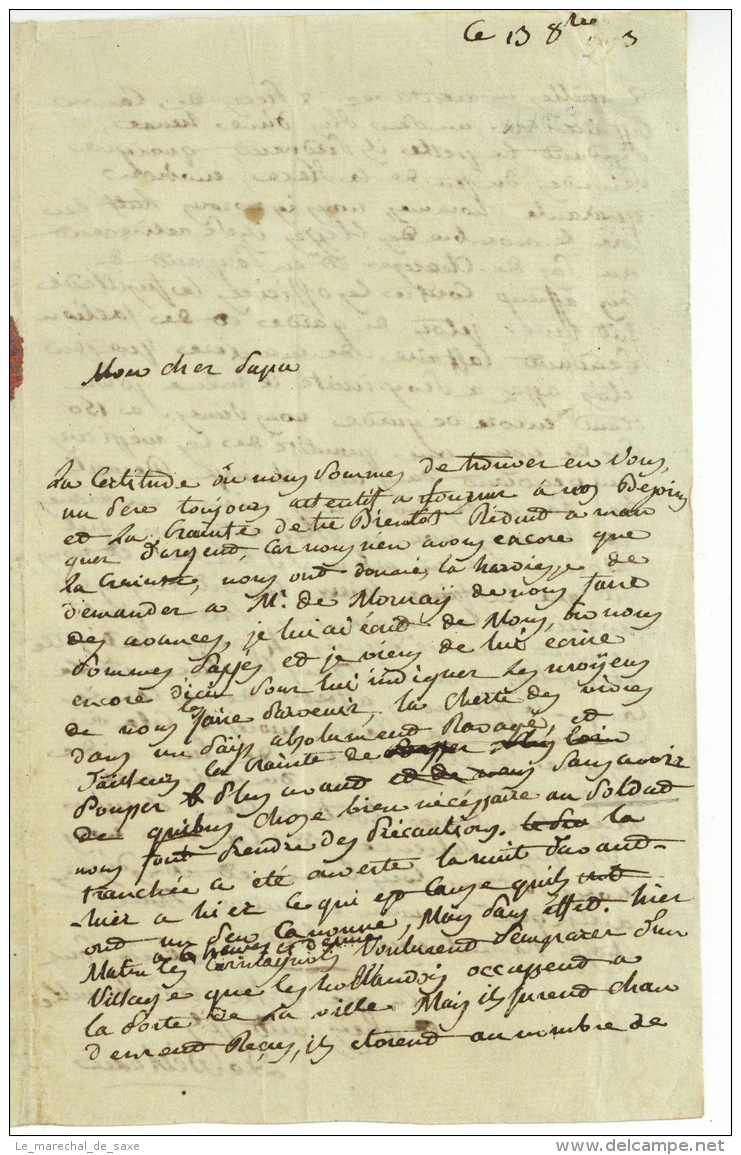 Ce 13 8bre 3
Mon cher papa
La Certitude où nous sommes de trouver en vous,
un pere toujours attentif a fournir à nos Besoins
et La Crainte detre Bientot Réduit a man
quer d'argent, car nous n'en avons encore que
la Crainte, nous ont donnés la hardiesse de
demander a Mr. de Mornaÿ de nous faire
des avances, je lui ai écrit de Mons, où nous
sommes passés et je viens de lui écrire
encore d'ici pour lui indiquer les moÿens
de nous les faire parvenir, la cherté des vivres
dans un païs absolument Ravagé, et
d'ailleurs la crainte de
pousser plus avant sans avoir
de quibus chose bien nécéssaire au soldat
nous font prendre des précautions. la
tranchée a été ouverte la nuit d'avant-
-hier a hier ce qui est cause quils
ont un peu canonné, Mais sans effet. hier
Matin a 6 heures et demie les Carmagnols voulurend semparer d'un
village que les hollandois occuppend a
la porte de la ville Mais ils furend chau
dement Reçus, ils etoiend au nombre de
Le_marechal_de_saxe
delcampe.net